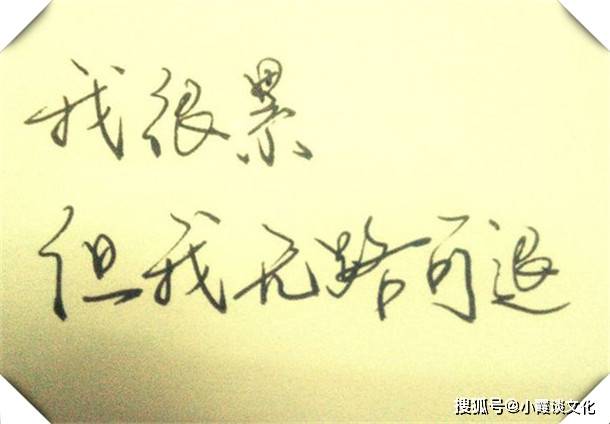 我很累
但我无路可退
搜狐号@小霞谈文化